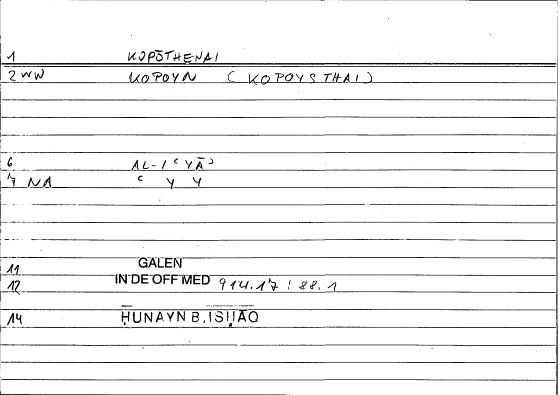 1 KOPŌTHENAI
2 WW KOPOYN (KOPOYSTHAI)
6 AL-IʿYĀʾ
7 NA ʿ Y Y
11 GALEN
12 IN DE OFF MED 914.17 : 88.1
14 ḤUNAYN B. ISḤĀQ